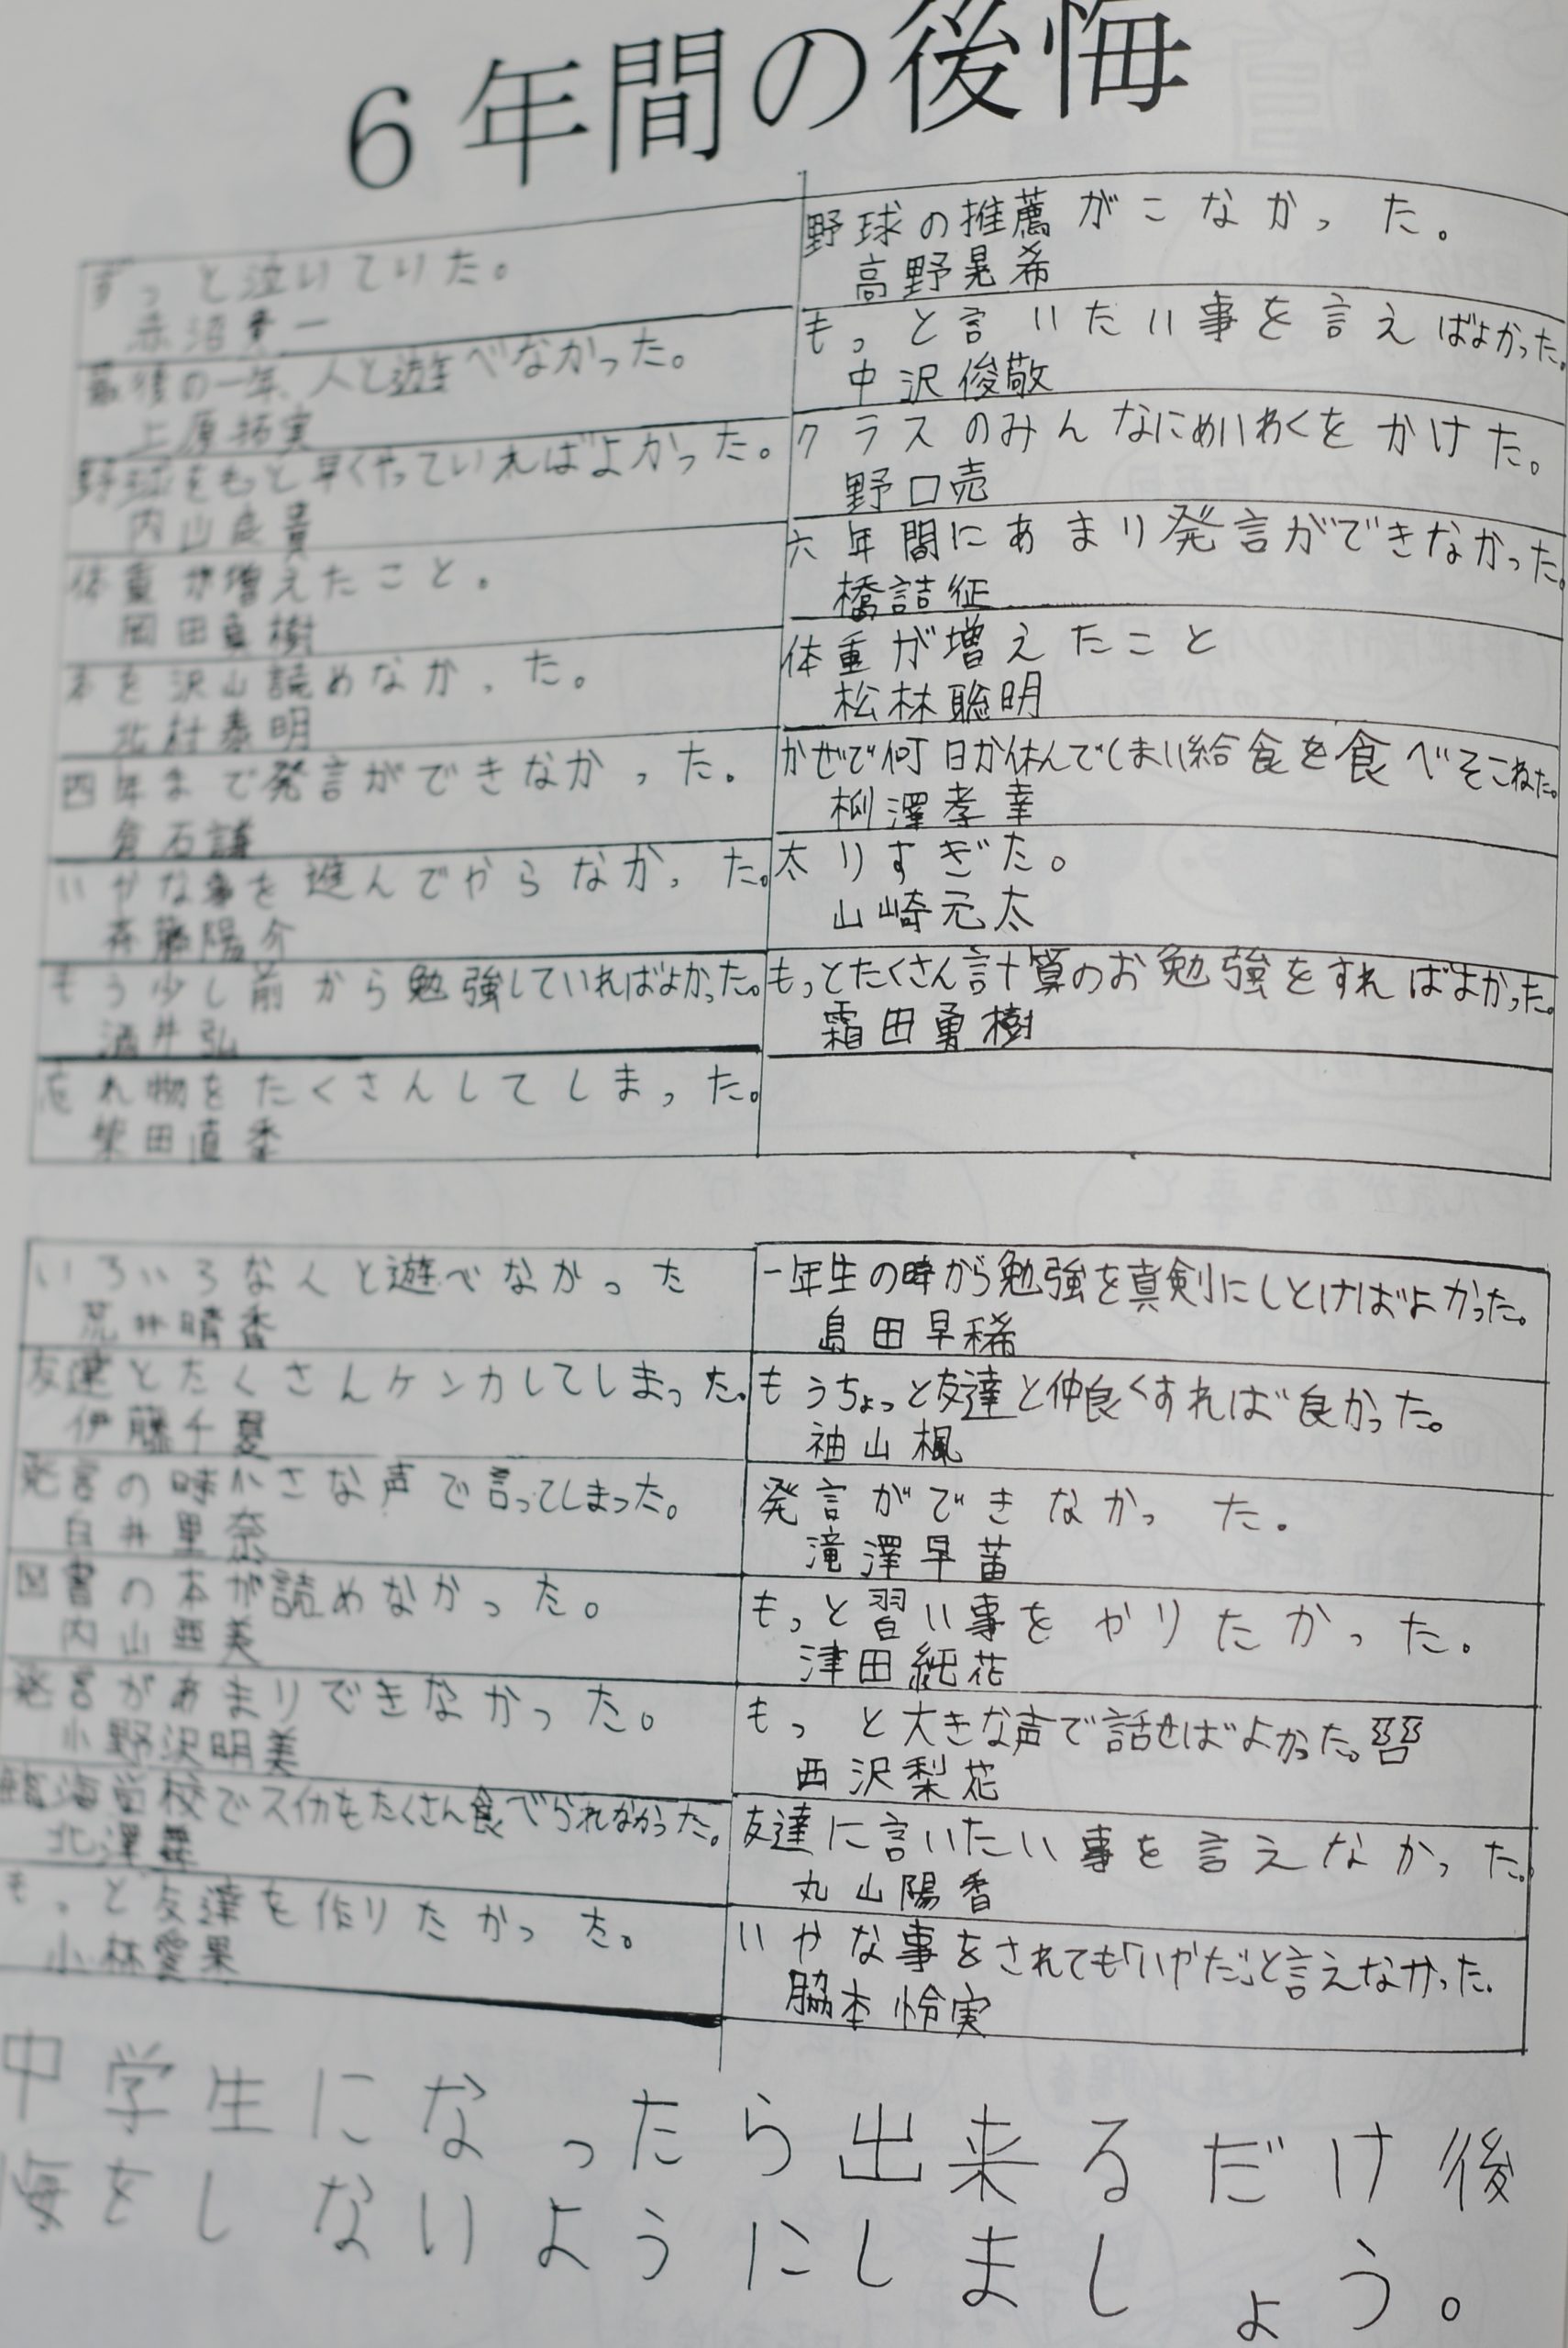 6年間の後悔
ずっと泣いていた。
赤沼
最後の一年、人と遊べなかった。
上原拓実
野球をもっと早くやっていればよかった。
内山良貴
体重が増えたこと。
岡田 樹
本を沢山読めなかった。
北村泰明
四年まで発言ができなかった。
倉石謙
いやな事を進んでやらなかった。
斉藤陽介
もう少し前から勉強していればよかった。
酒井弘
忘れ物をたくさんしてしまった。
柴田直季
野球の推薦がこなかった。
高野晃希
もっと言いたい事を言えばよかった。
中沢俊敬
クラスのみんなにめいわくをかけた。
野口売
六年間にあまり発言ができなかった。
橋詰征
体重が増えたこと
松林聡明
かぜで何日か休んでしまい給食を食べそこねた。
柳澤孝幸
太りすぎた。
山崎元太
もっとたくさん計算のお勉強をすればよかった。
霜田勇樹
いろいろな人と遊べなかった
荒井晴香
友達とたくさんケンカしてしまった。
伊藤千夏
発言の時小さな声で言ってしまった。
臼井里奈
図書の本が読めなかった。
内山亜美
発言があまりできなかった。
小野沢明美
臨海学校でスイカをたくさん食べられなかった。
北澤舞
もっと友達を作りたかった。
小林愛果
一年生の時から勉強を真剣にしとけばよかった。
島田早稀
もうちょっと友達と仲良くすれば良かった。
袖山楓
発言ができなかった。
滝澤早苗
もっと習い事をやりたかった。
津田純花
もっと大きな声で話せばよかった。
西沢梨花
友達に言いたい事を言えなかった。
丸山陽香
いやな事をされても「いやだ」と言えなかった。
脇本怜実
中学生になったら出来るだけ後
悔をしないようにしましょう。